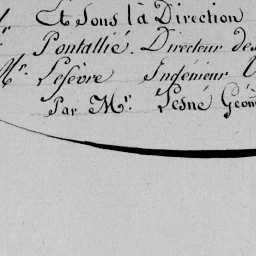 Et Sous la Direction
Pontallié. Directeur des
Mr. Lefèvre Ingénieur
Par Mr. Lesné Géom